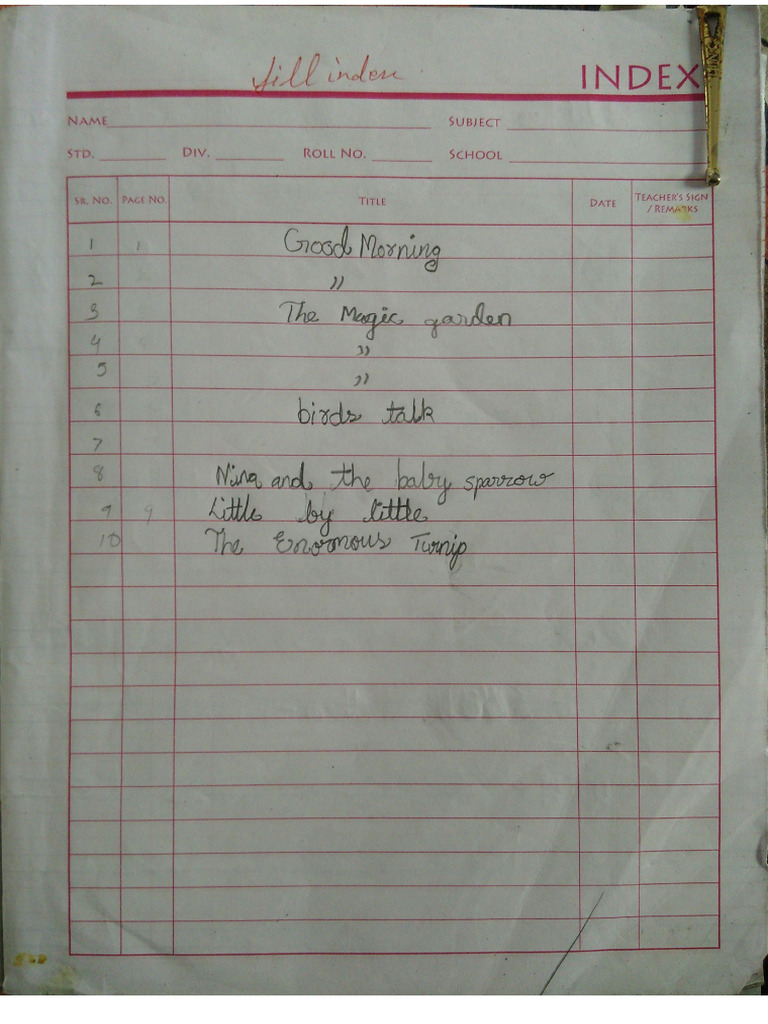 fill index
INDEX
NAME SUBJECT
STD. DIV. ROLL NO. SCHOOL
SR. NO. PAGE NO. TITLE DATE TEACHER'S SIGN / REMARKS
1 1 Good Morning
2 "
3 The Magic garden
4 "
5 "
6 birds talk
7
8 Nina and the baby sparrow
9 9 Little by little
10 The Enormous Turnip